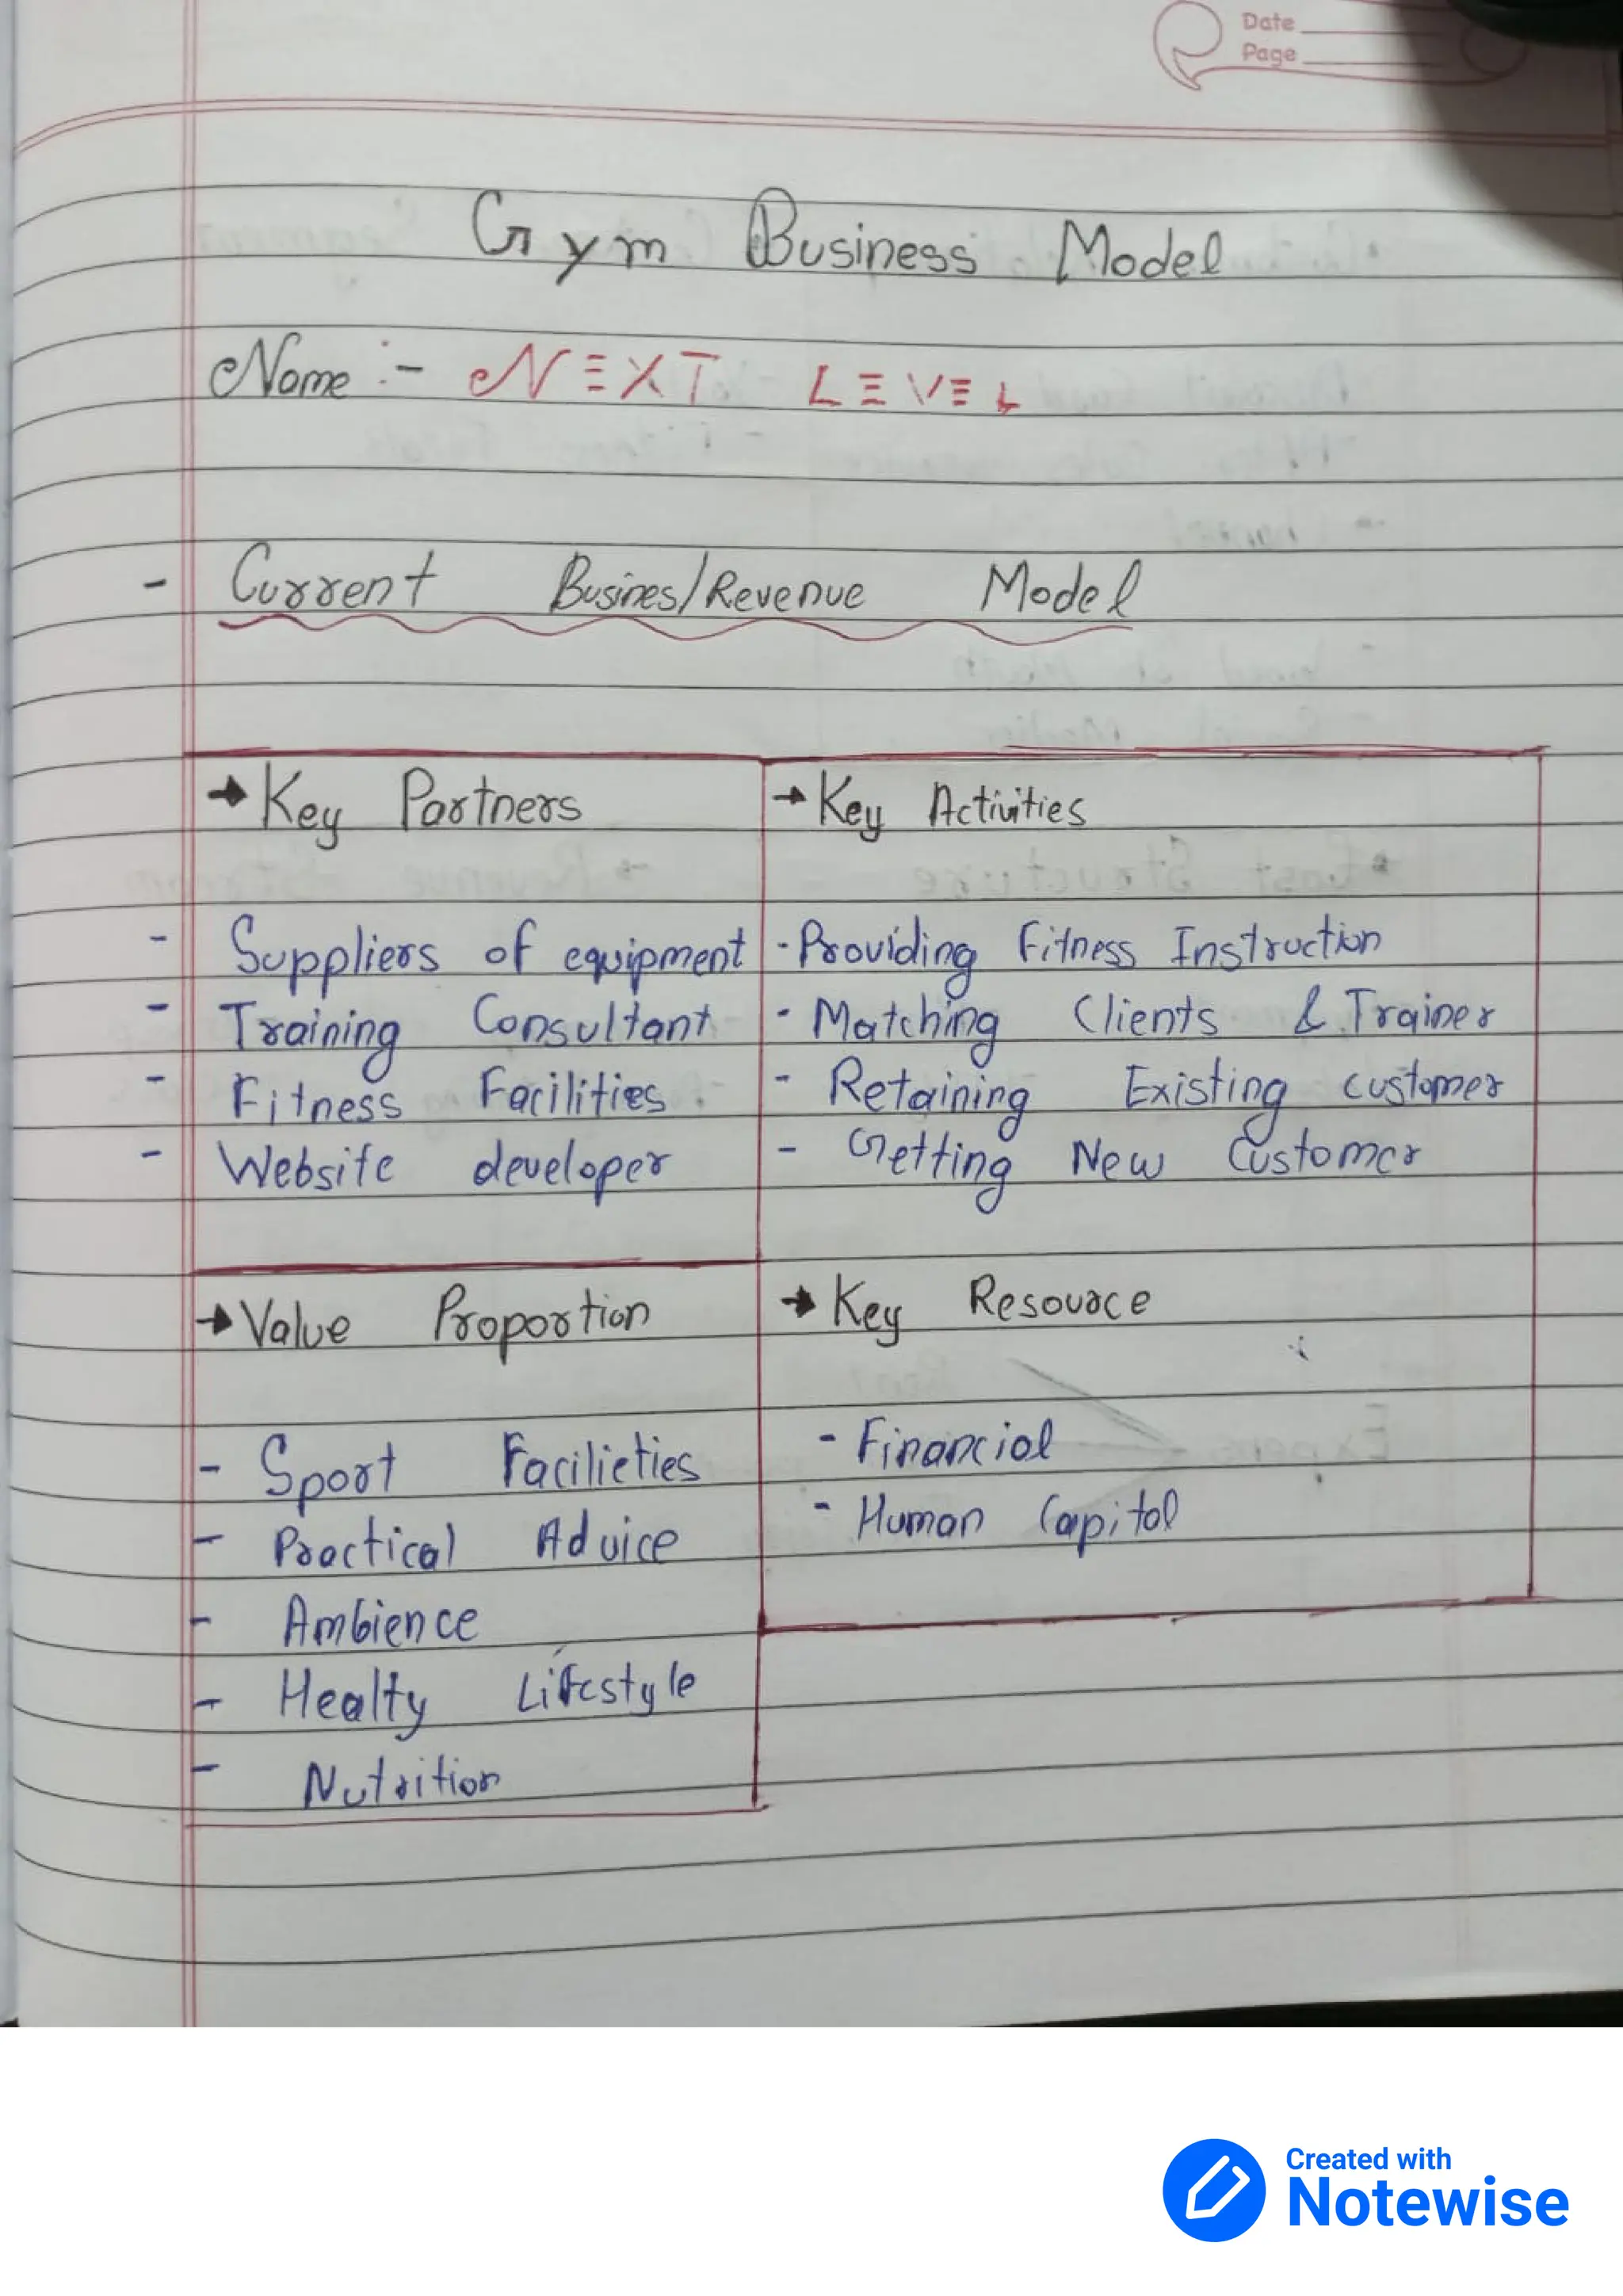 Date
Page
Gym Business Model
Name :- NEXT LEVEL
- Current Busines/Revenue Model
→ Key Partners
- Suppliers of equipment
- Training Consultant
- Fitness Facilities
- Website developer
→ Key Activities
- Providing Fitness Instruction
- Matching Clients & Trainer
- Retaining Existing customer
- Getting New Customer
→ Value Proportion
- Sport Facilieties
- Practical Advice
- Ambience
- Healty Lifestyle
- Nutrition
→ Key Resource
- Financial
- Human Capital
Created with
Notewise